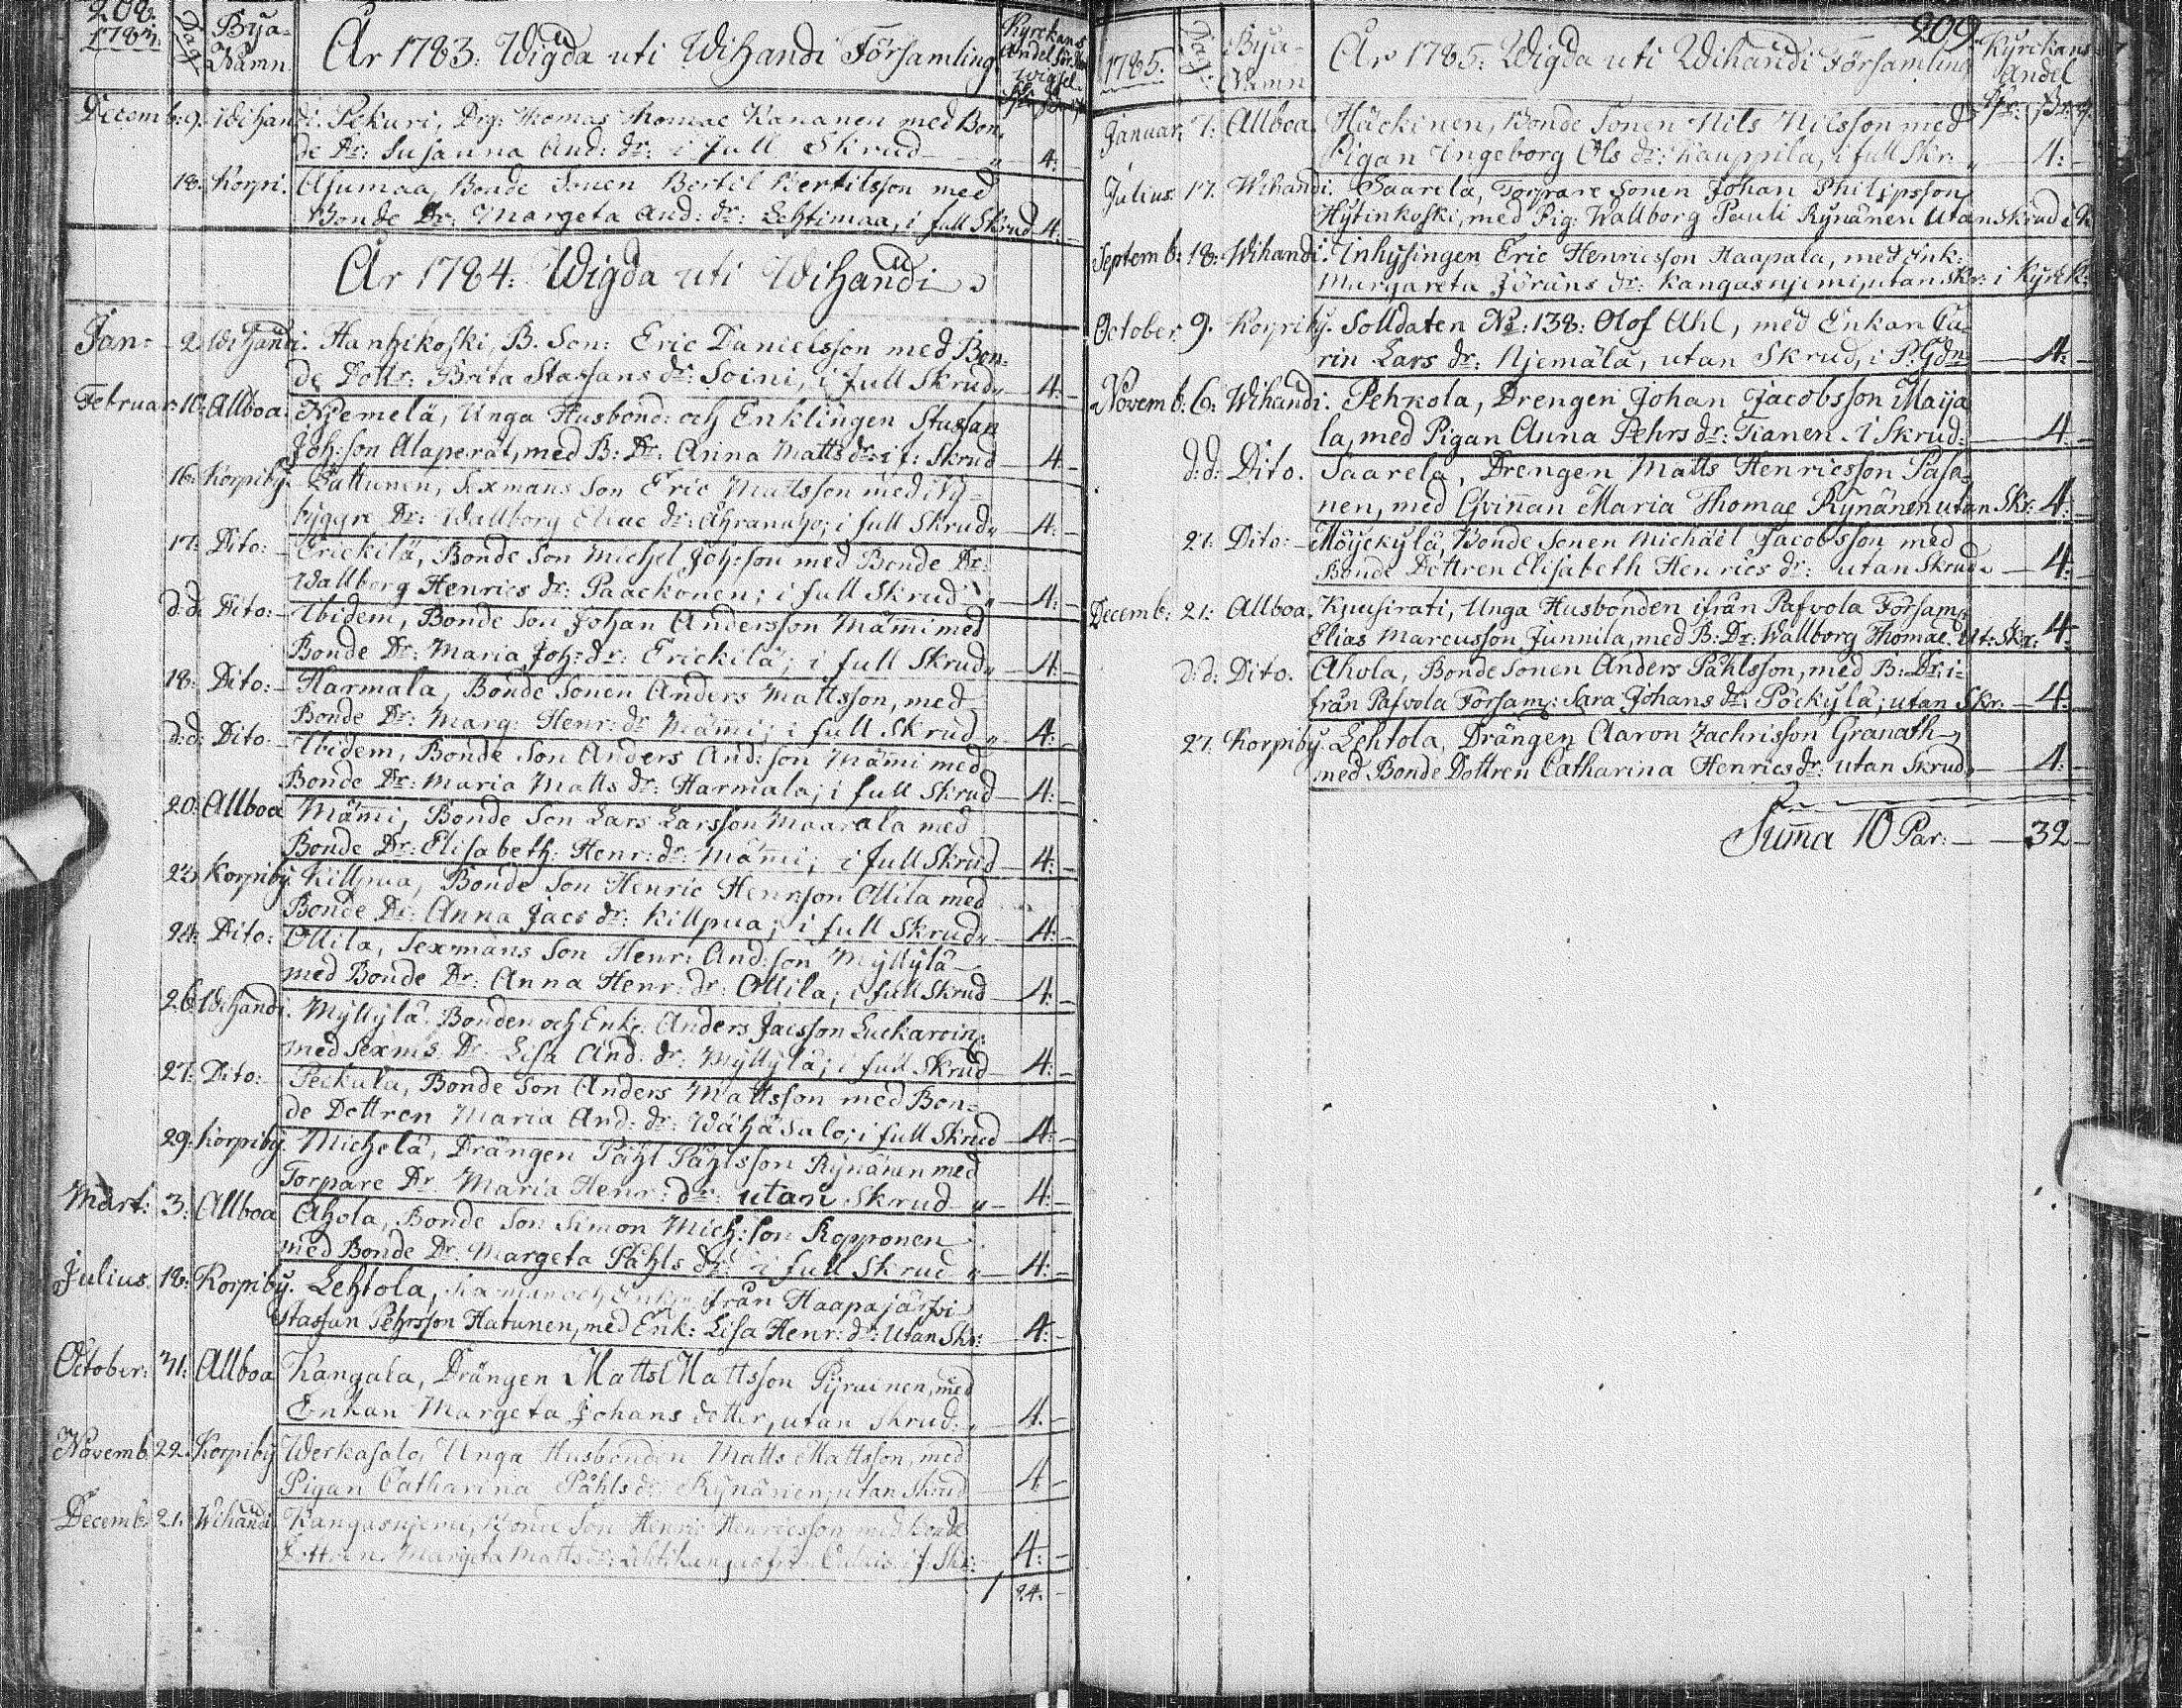 208.
1783. Dag. Bya-Namn. År 1783. Wigda uti Wihandi Församling. Kyrckans Andel för Wigsel
Decemb: 9. Wihandi. Pekuri, Drg: Thomas Thomae Kananen med Bon-
de Dr: Susanna And: dr: i full Skrud 4:
18. Korpi. Asumaa, Bonde Sonen Bertil Bertilsson med
Bonde Dr: Margeta And: dr: Lehtimaa, i full Skrud 4:
År 1784: Wigda uti Wihandi
Jan: 2. Wihandi. Hanhikoski, B. Son: Eric Danielsson med Bon-
de Dottr: Brita Staffans dr: Soini, i full Skrud 4:
Februar: 10: Allboa. Njemelä, Unga Husbond: och Enklingen Staffan
Joh:son Alaperät, med B: Dr: Anna Matts dr: i f: Skrud 4:
16: Korpiby. Pattunen, Sexmans Son Eric Mattsson med Ny-
byggre Dr: Wallborg Eliae dr: Ahranaho; i full Skrud 4:
17: Dito: Erickilä, Bonde Son Michel Joh:son med Bonde Dr:
Wallborg Henrics dr: Paackonen; i full Skrud 4:
d:d: Dito: Ibidem, Bonde Son Johan Andersson Mämi med
Bonde Dr: Maria Joh: dr: Erickilä; i full Skrud 4:
18: Dito: Harmala, Bonde Sonen Anders Mattsson, med
Bonde Dr: Marg: Henr: dr: Mämi; i full Skrud 4:
d:d: Dito. Ibidem, Bonde Son Anders And:son Mämi med
Bonde Dr: Maria Matts dr: Harmala; i full Skrud 4:
20: Allboa Mämi, Bonde Son Lars Larsson Maarala med
Bonde Dr: Elisabeth Henr: dr: Mämi; i full Skrud 4:
23. Korpiby. Killpua, Bonde Son Henric Henrsson Ollila med
Bonde Dr: Anna Jacs dr: Killpua; i full Skrud 4:
24: Dito: Ollila, Sexmans Son Henr: And:son Myllylä
med Bonde Dr: Anna Henr: dr: Ollila; i full Skrud 4:
26: Wihandi. Myllylä. Bonden och Enkl: Anders Jacsson Luckaroin:
med Sexm:s Dr: Lisa And: dr: Myllylä; i full Skrud 4:
27: Dito: Peckala, Bonde Son Anders Mattsson med Bon-
de Dottren Maria And: dr: Wähäsalo; i full Skrud 4:
29: Korpiby. Michelä, Drängen Påhl Påhlsson Rynänen med
Torpare Dr: Maria Henr: dr: utan Skrud 4:
Mart: 3: Allboa Ahola, Bonde Son Simon Mich:son Ropponen
med Bonde Dr: Margeta Påhls dr: i full Skrud 4:
Julius. 18: Korpiby. Lehtola, ifrån Haapajärfvi
Staffan Pehrsson Hatunen, med Enk: Lisa Henr: dr: Utan Skr: 4:
October: 31: Allboa Kangala, Drängen Matts Mattsson Pyrainen, med
Enkan Margeta Johans dotter, utan skrud. 4:
Novemb. 22. Korpiby Werkasalo, Unga Husbonden Matts Mattsson, med
Pigan Catharina Påhls dr: Rynänen, utan Skrud 4:
Decemb: 21. Wihandi Kangasnjemi, Bonde Son Henric Henricsson med Bonde
Dottren Margeta Matts dr: i f. Skr: 4:
1 24.
209.
1785. Dag: Bya-Namn År 1785: Wigda uti Wihandi Församling Kyrckans Andel
Januar: 7: Allboa. Häckinen, Bonde Sonen Nils Nilsson med
Pigan Ingeborg Ols dr: Kauppila, i full Skr: 4:
Julius. 17. Wihandi. Saarela, Torpare Sonen Johan Philipsson
Hytinkoski, med Pig: Wallborg Pauli Rynänen Utan Skrud
Septemb: 18: Wihandi. Inhysingen Eric Henricsson Haapala, med Enk:
Margareta Jörans dr: Kangasnjemi, utan Skr: i Kyrk:
October. 9. Korpiby. Solldaten No: 138: Olof Ahl, med Enkan Ca-
rin Lars dr: Njemälä, utan Skrud, i P: Gdn 4:
Novemb: 6: Wihandi. Pehkola, Drengen Johan Jacobsson Maija
la, med Pigan Anna Pehrs dr: Tianen. i Skrud: 4.
d:d: Dito. Saarela, Drengen Matts Henricsson Pasa-
nen, med Qvinnan Maria Thomae Rynänen utan Skr: 4:
21: Dito: Möyckylä, Bonde Sonen Michäel Jacobsson med
Bonde Dottren Elisabeth Henrics dr: utan Skrud 4:
Decemb: 21: Allboa. Kuusirati, Unga Husbonden ifrån Pafvola Försam:
Elias Marcusson Junnila, med B: Dr: Wallborg Thomae. Ut: Skr: 4:
d:d: Dito. Ahola, Bonde Sonen Anders Påhlsson, med B: Dr: i-
från Pafvola Försam: Sara Johans dr: Pöckylä; utan Skr. 4:
27. Korpiby. Lehtola, Drängen Aaron Zachrisson Granath
med Bonde Dottren Catharina Henrics dr: utan Skrud 4:
Summa 10 Par: 32